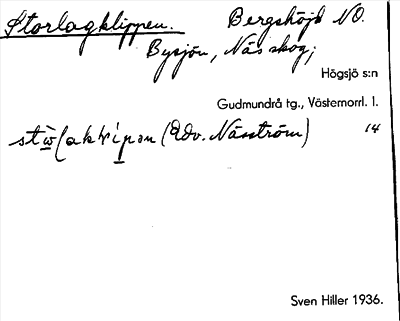 Storlagklippen. Bergshöjd NO.
Bysjön, Näs skog;
Högsjö s:n
Gudmundrå tg., Västernorrl. l.
(Edv. Näsström) 14
Sven Hiller 1936.